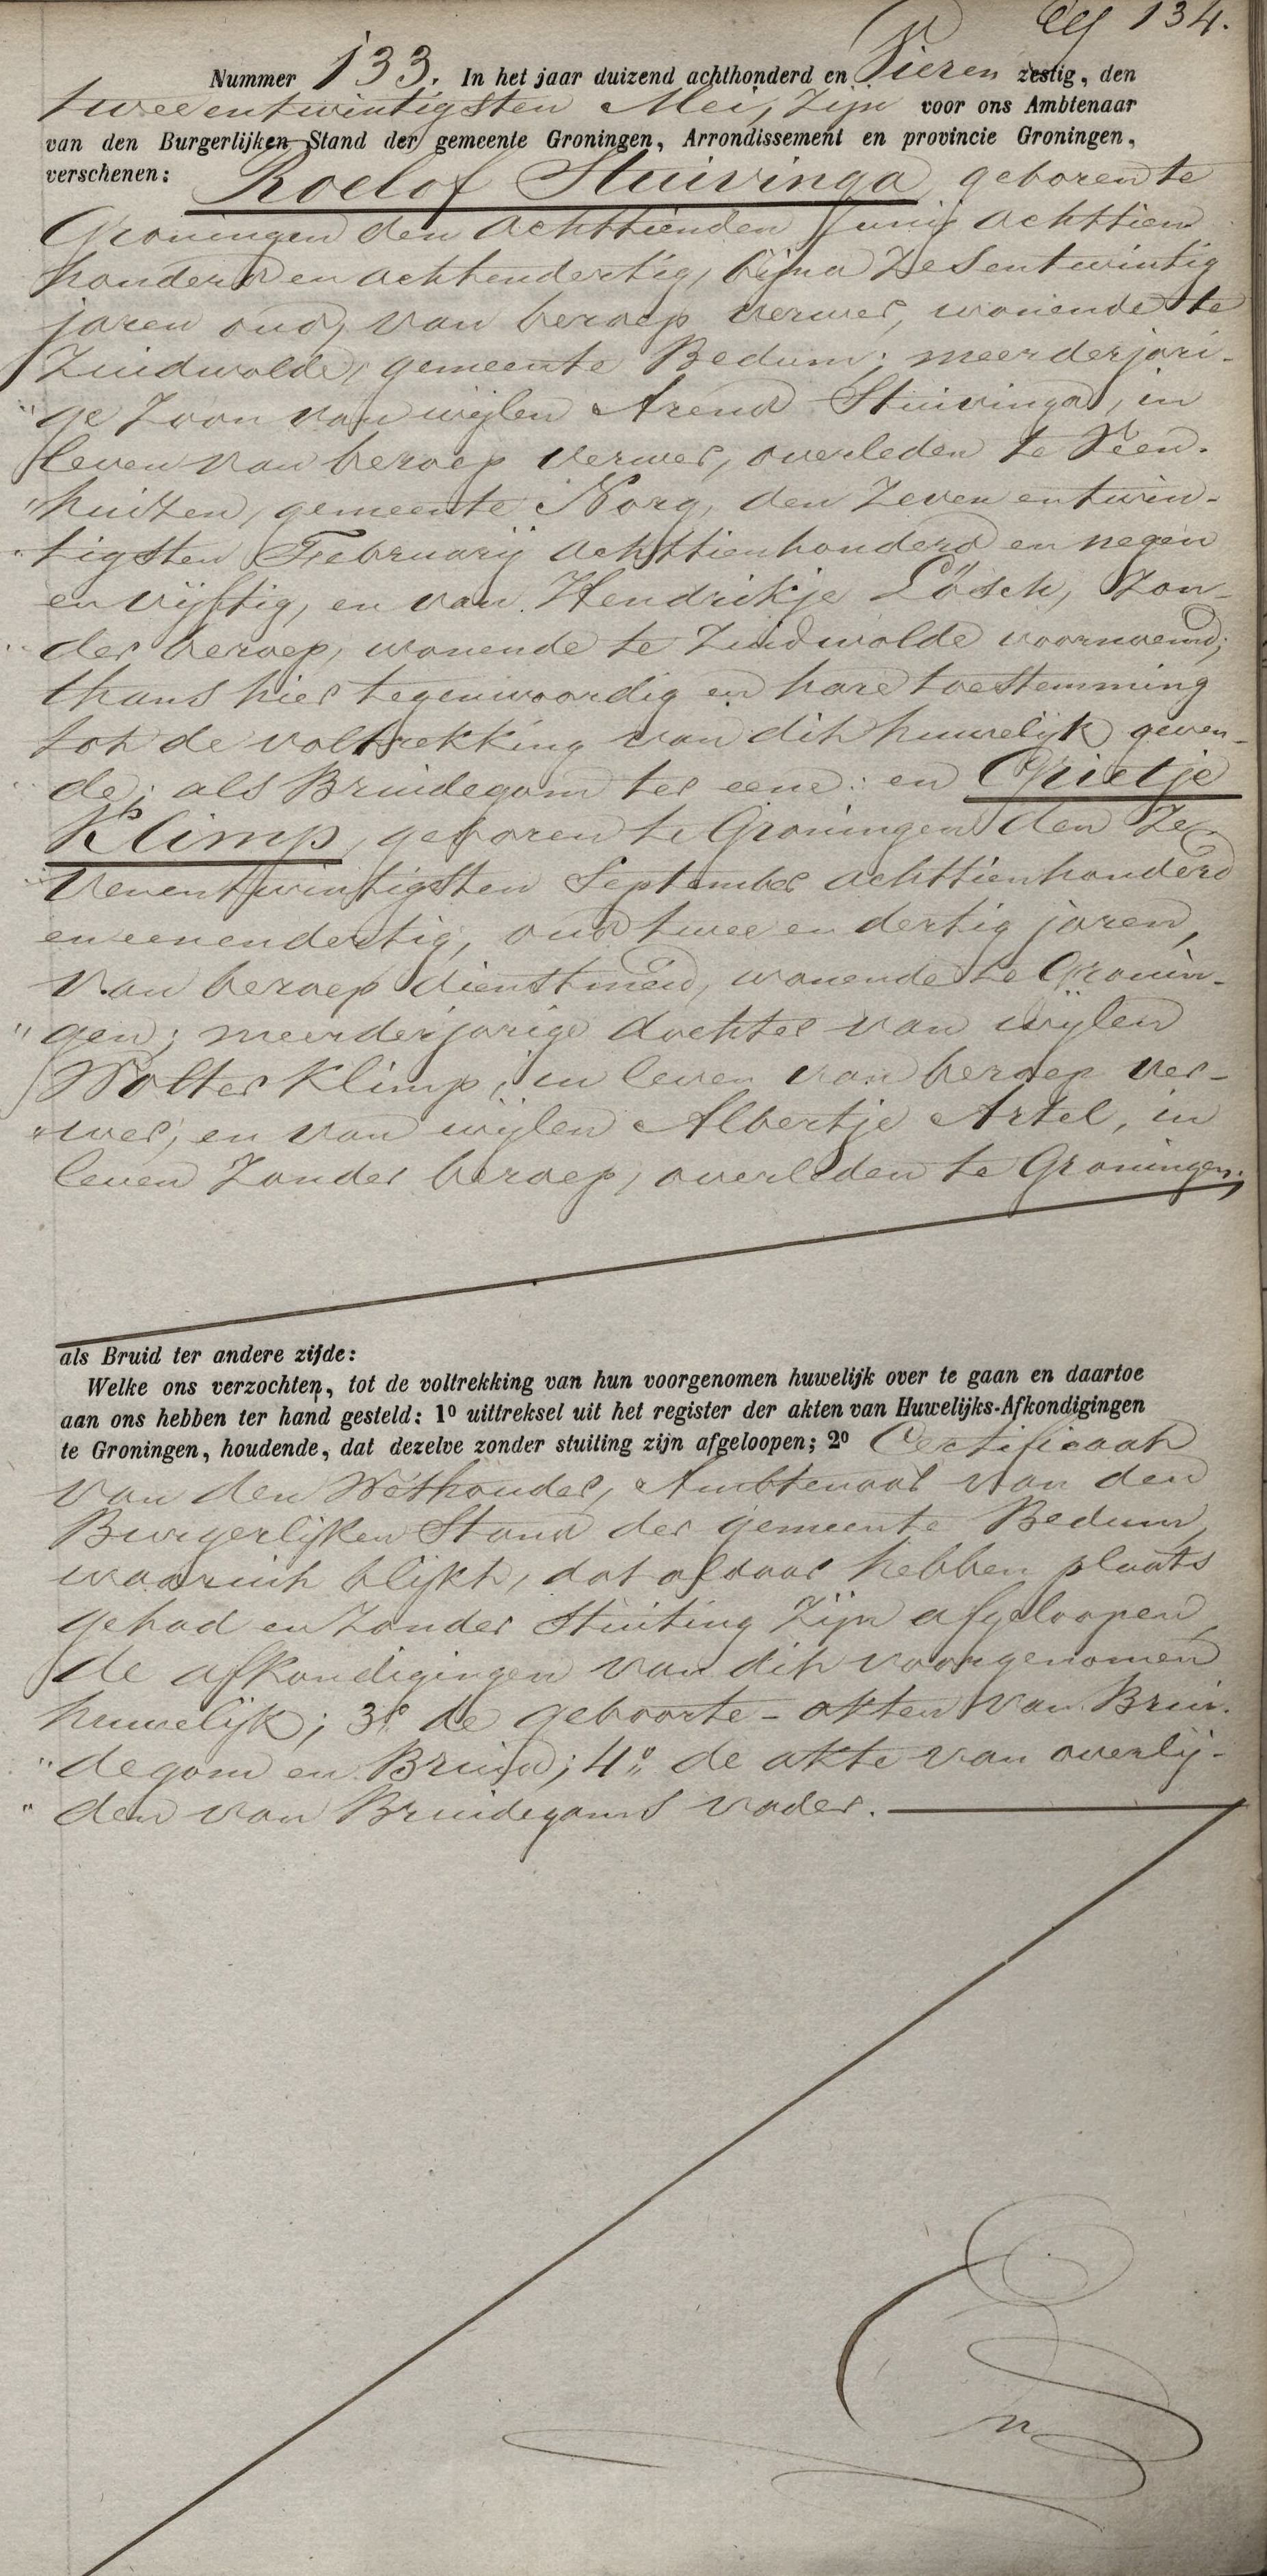 134.
Nummer 133. In het jaar duizend achthonderd en Vieren zestig, den
tweeentwintigsten Mei, zijn voor ons Ambtenaar
van den Burgerlijken Stand der gemeente Groningen, Arrondissement en provincie Groningen,
verschenen: Roelof Stuivinga, geboren te
Groningen den achttienden Junij achttien
honderd en achtendertig, bijna zesentwintig
jaren oud, van beroep verwer, wonende te
Zuidwolde, gemeente Bedum; meerderjari-
"ge Zoon van wijlen Arend Stuivinga, in
leven van beroep verwer, overleden te Veen-
"huizen, gemeente Norg, den Zeven entwin-
"tigsten Februarij achttienhonderd en negen
en vijftig, en van Hendrikje Lösch, Zon-
"der beroep, wonende te Zuidwolde voornoemd;
thans hier tegenwoordig en hare toestemming
tot de voltrekking van dit huwelijk geven-
"de; als Bruidegom ter eene: en Grietje
Klimp, geboren te Groningen den Ze-
"venentwintigsten September achttienhonderd
en eenendertig, oud twee en dertig jaren,
van beroep dienstmeid, wonende te Gronin-
"gen; meerderjarige dochter van wijlen
Wolter Klimp, in leven van beroep ver-
"wer, en van wijlen Albertje Artel, in
leven Zonder beroep, overleden te Groningen;
als Bruid ter andere zijde:
Welke ons verzochten, tot de voltrekking van hun voorgenomen huwelijk over te gaan en daartoe
aan ons hebben ter hand gesteld: 1º uittreksel uit het register der akten van Huwelijks-Afkondigingen
te Groningen, houdende, dat dezelve zonder stuiting zijn afgeloopen; 2º Certificaat
van den Wethouder, Ambtenaar van den
Burgerlijken Stand der gemeente Bedum,
waaruit blijkt, dat aldaar hebben plaats
gehad en Zonder Stuiting Zijn afgeloopen
de afkondigingen van dit voorgenomen
huwelijk; 3º de geboorte-akten van Brui-
"degom en Bruid; 4º de akte van overlij-
"den van Bruidegoms vader.